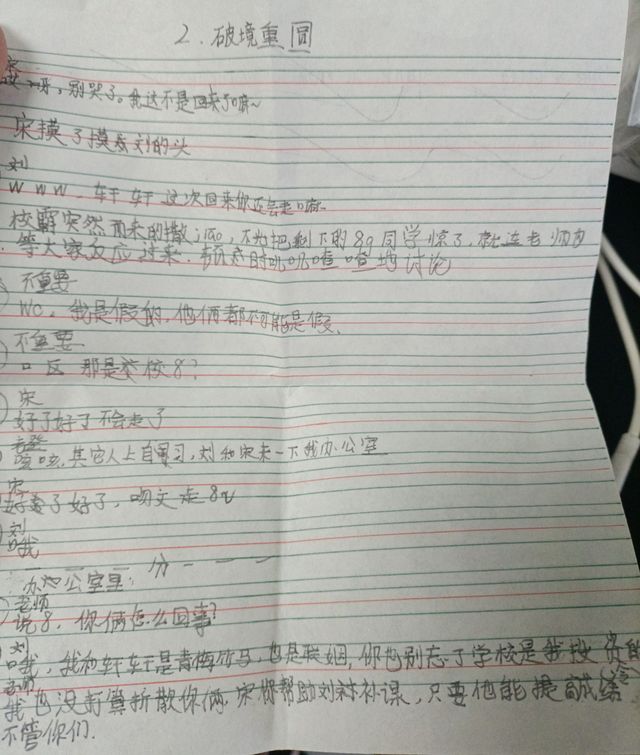 2. 破境重圆
宋
哎呀,别哭了。我这不是回来了嘛~
宋摸了摸卷刘的头
刘
W W W 轩轩 这次回来你还会走嘛
校霸突然而来的撒jiao,不光把剩下的89同学惊了,就连老师
等大家反应过来,顿时叽叽喳喳的讨论
不重要
WC,我是假的,他俩都不可能是假
不重要
口区 那是举校8?
宋
好了好了 不会走了
老登
咳咳,其它人上自习,刘和宋来一下我办公室
宋
好了好了,吻文走8q
刘
哦
分
办公室里:
老师
说8,你俩怎么回事?
刘
哦,我和轩轩是青梅竹马,也是联姻,你也别忘了学校是我投资
老师
我也没打算拆散你俩,宋你帮助刘补补课,只要他能提高成绩
不管你们.